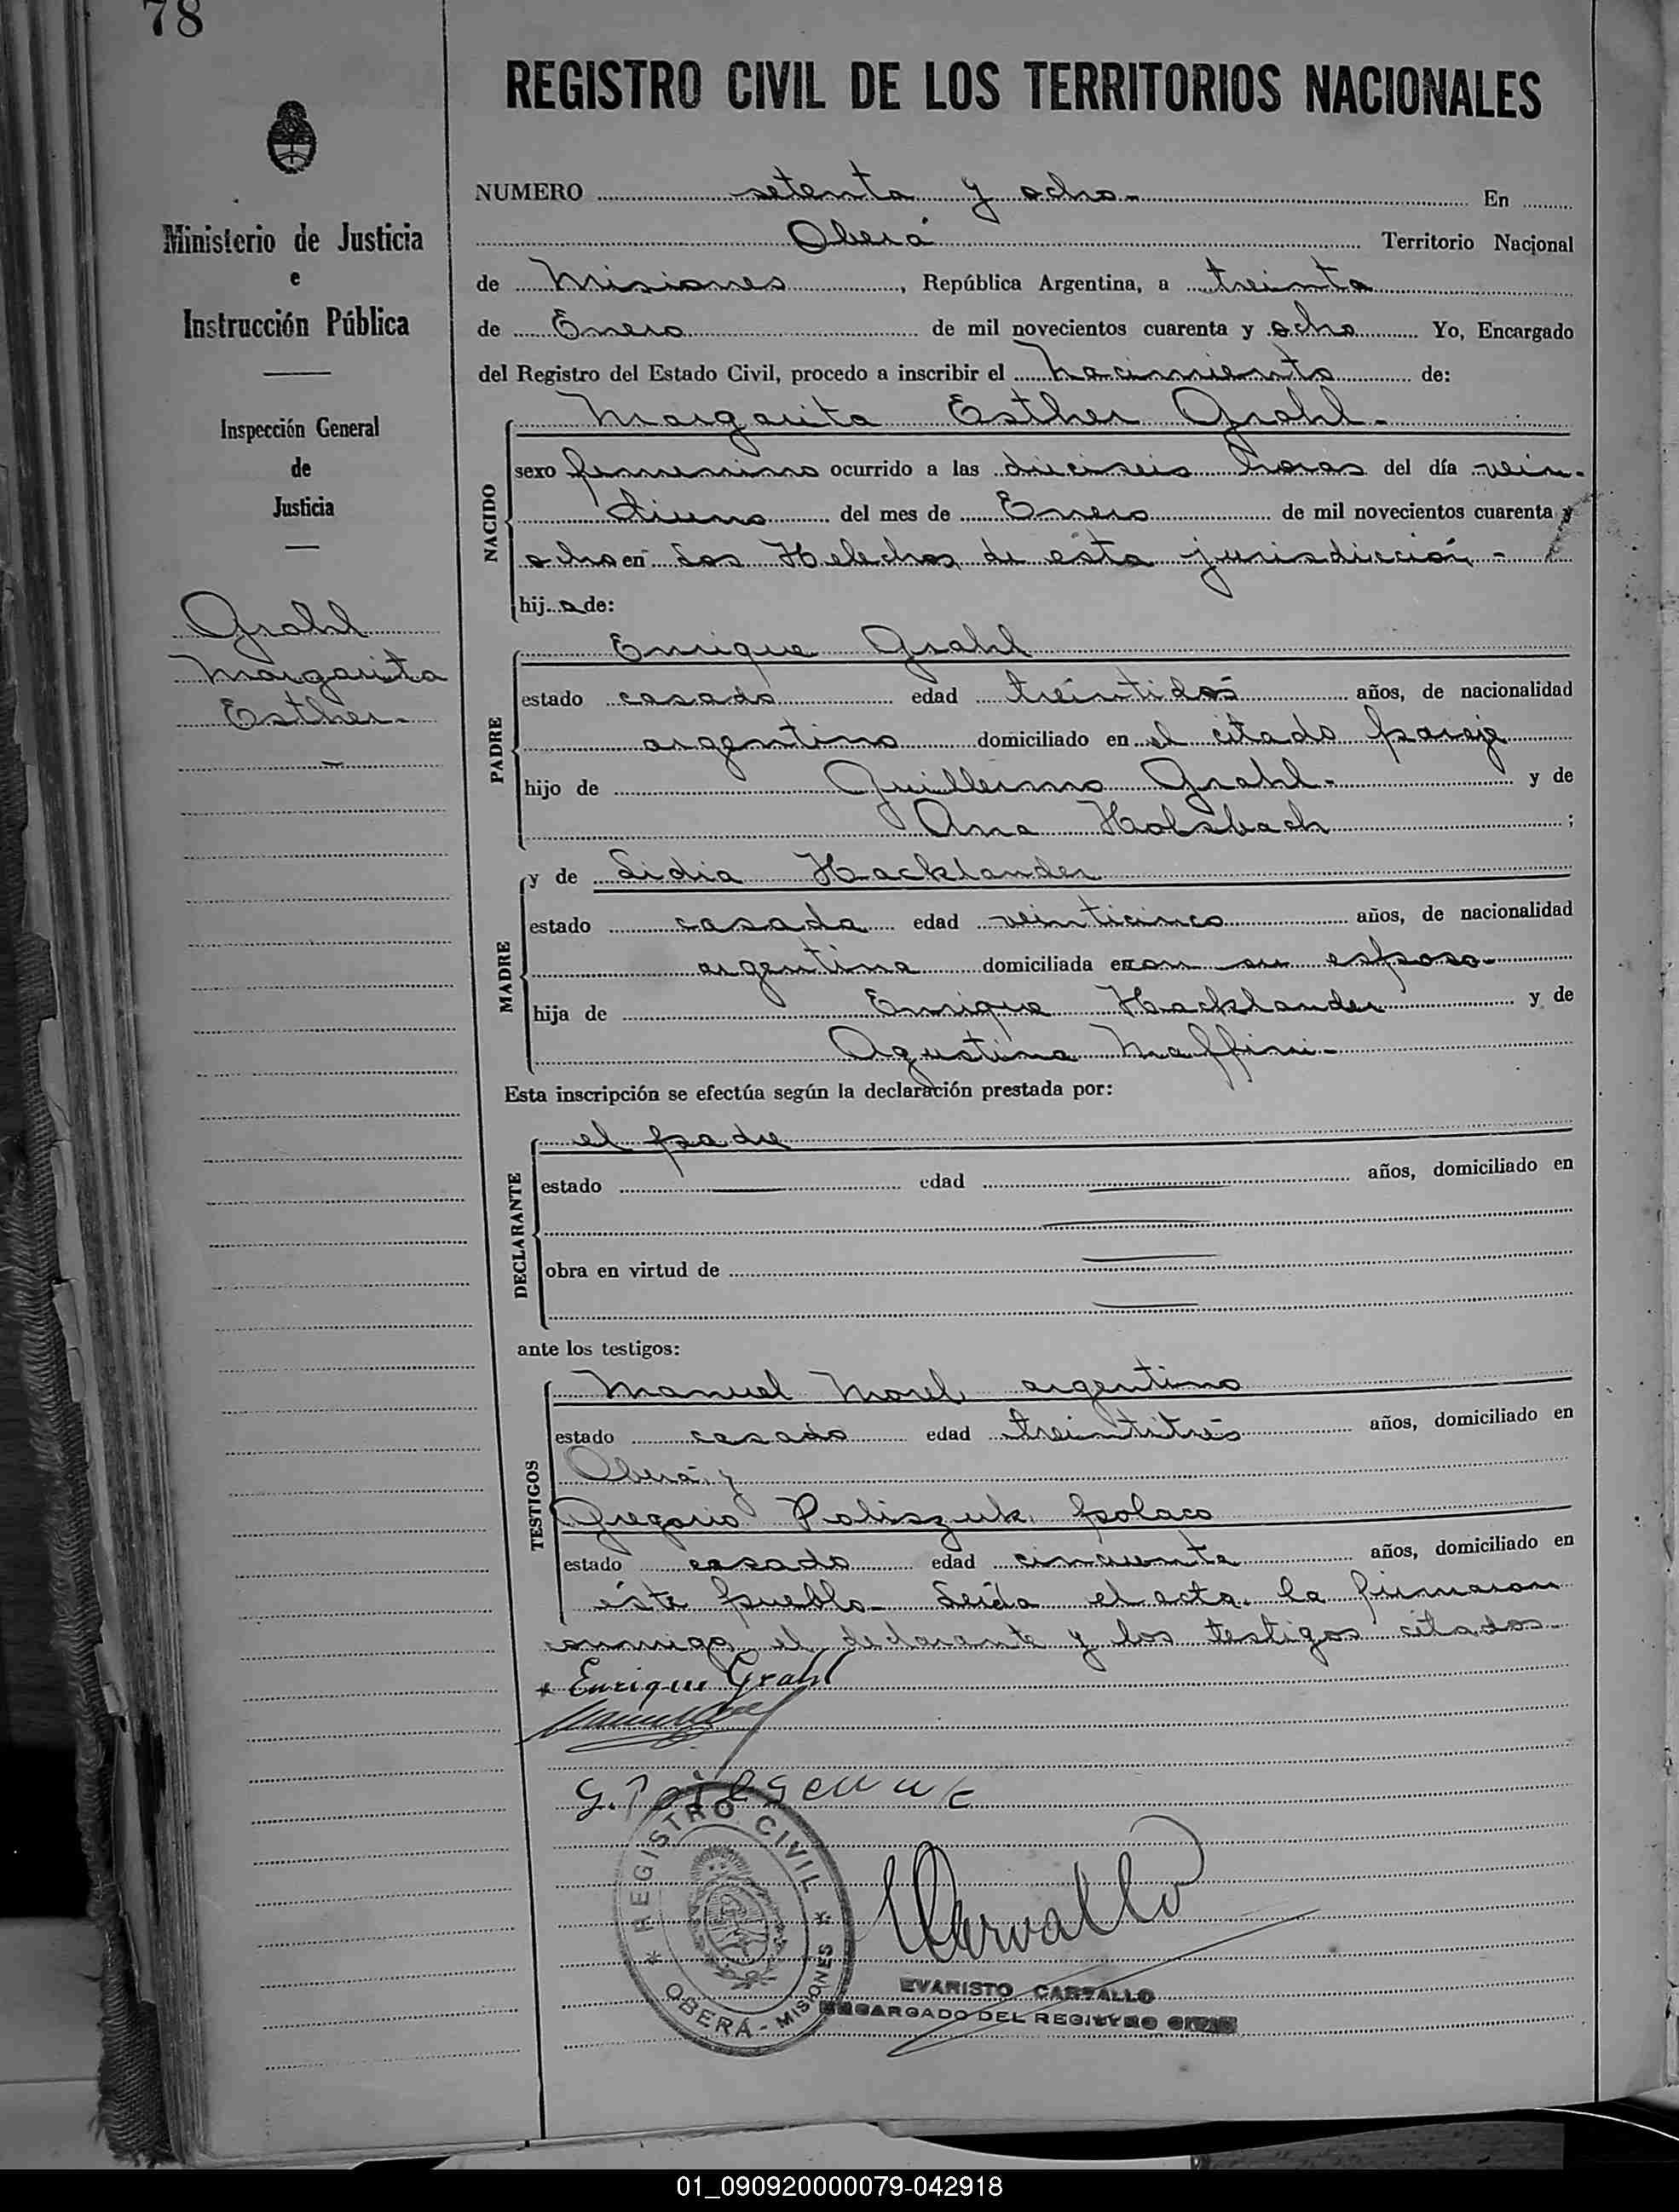 78
REGISTRO CIVIL DE LOS TERRITORIOS NACIONALES
Ministerio de Justicia
e
Instrucción Pública
Inspección General
de
Justicia
Grahl
Margarita
Esther.-
NUMERO setenta y ocho.- En
Oberá Territorio Nacional
de Misiones, República Argentina, a treinta
de Enero de mil novecientos cuarenta y ocho Yo, Encargado
del Registro del Estado Civil, procedo a inscribir el nacimiento de:
NACIDO
Margarita Esther Grahl.-
sexo femenino ocurrido a las dieciseis horas del día vein-
tiuno del mes de Enero de mil novecientos cuarenta y
ocho en Los Helechos, de esta jurisdicción.-
hija de:
PADRE
Enrique Grahl
estado casado edad treintidós años, de nacionalidad
argentino domiciliado en el citado paraje
hijo de Guillermo Grahl.- y de
Ana Holsbach ;
MADRE
y de Lidia Hacklander
estado casada edad veinticinco años, de nacionalidad
argentina domiciliada con su esposo.-
hija de Enrique Hacklander y de
Agustina Maffini.-
Esta inscripción se efectúa según la declaración prestada por:
DECLARANTE
el padre
estado edad años, domiciliado en
obra en virtud de
ante los testigos:
TESTIGOS
Manuel Morel, argentino
estado casado edad treintitrés años, domiciliado en
Oberá, y
Gregorio Poliszuk, polaco
estado casado edad cincuenta años, domiciliado en
éste pueblo.- Leída el acta, la firmaron
conmigo, el declarante y los testigos citados.-
Enrique Grahl
REGISTRO CIVIL
OBERÁ - MISIONES
Carvallo
EVARISTO CARVALLO
ENCARGADO DEL REGISTRO CIVIL
01_090920000079-042918